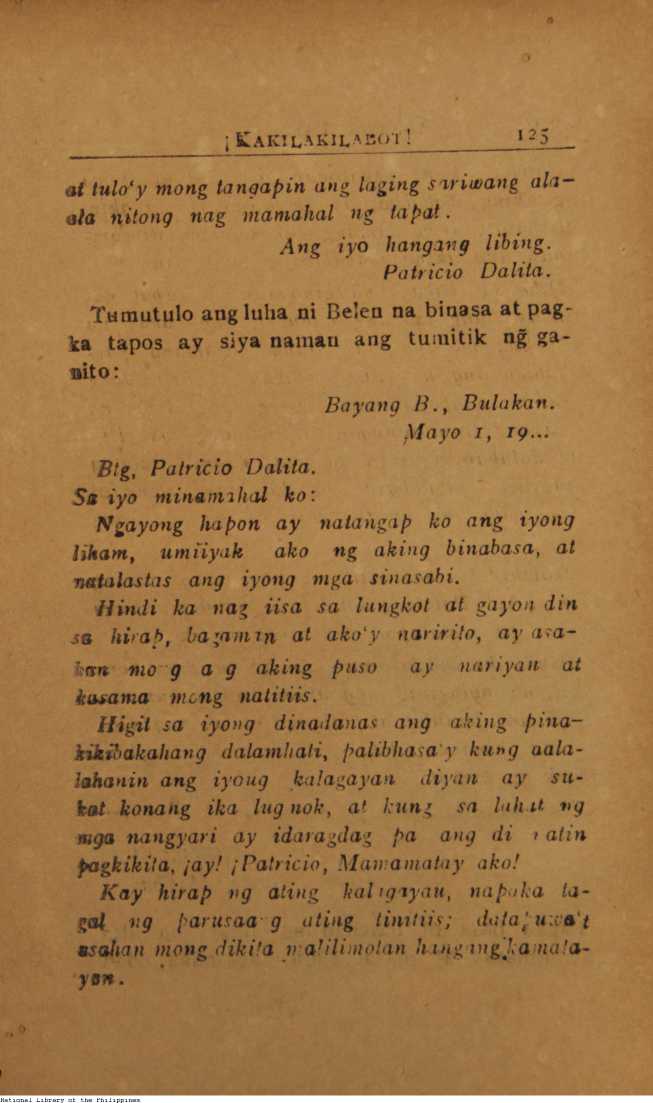 ¡KAKILAKILABOT! 125
at tulo‘y mong tangapin ang laging sariwang ala-
ala nitong nag mamahal ng tapat.
Ang iyo hangang libing.
Patricio Dalita.
Tumutulo ang luha ni Belen na binasa at pag-
ka tapos ay siya naman ang tumitik ng̃ ga-
nito:
Bayang B., Bulakan.
Mayo 1, 19...
Btg, Patricio Dalita.
Sa iyo minamahal ko:
Ngayong hapon ay natangap ko ang iyong
liham, umiiyak ako ng aking binabasa, at
natalastas ang iyong mga sinasabi.
Hindi ka nag iisa sa lungkot at gayon din
sa hirap, bagaman at ako‘y naririto, ay asa-
han mo g a g aking puso ay nariyan at
kasama mong natitiis.
Higit sa iyong dinadanas ang aking pina-
kikibakahang dalamhati, palibhasa‘y kung aala-
lahanin ang iyoug kalagayan diyan ay su-
kat konang ika lug nok, at kung sa lahat ng
mga nangyari ay idaragdag pa ang di natin
pagkikita, ¡ay! ¡Patricio, Mamamatay ako!
Kay hirap ng ating kalagayau, napaka ta-
gal ng parusaa g ating tinitiis; datapuwa‘t
asahan mong dikita malilimotan hangang kamata-
yan.
National Library of the Philippines